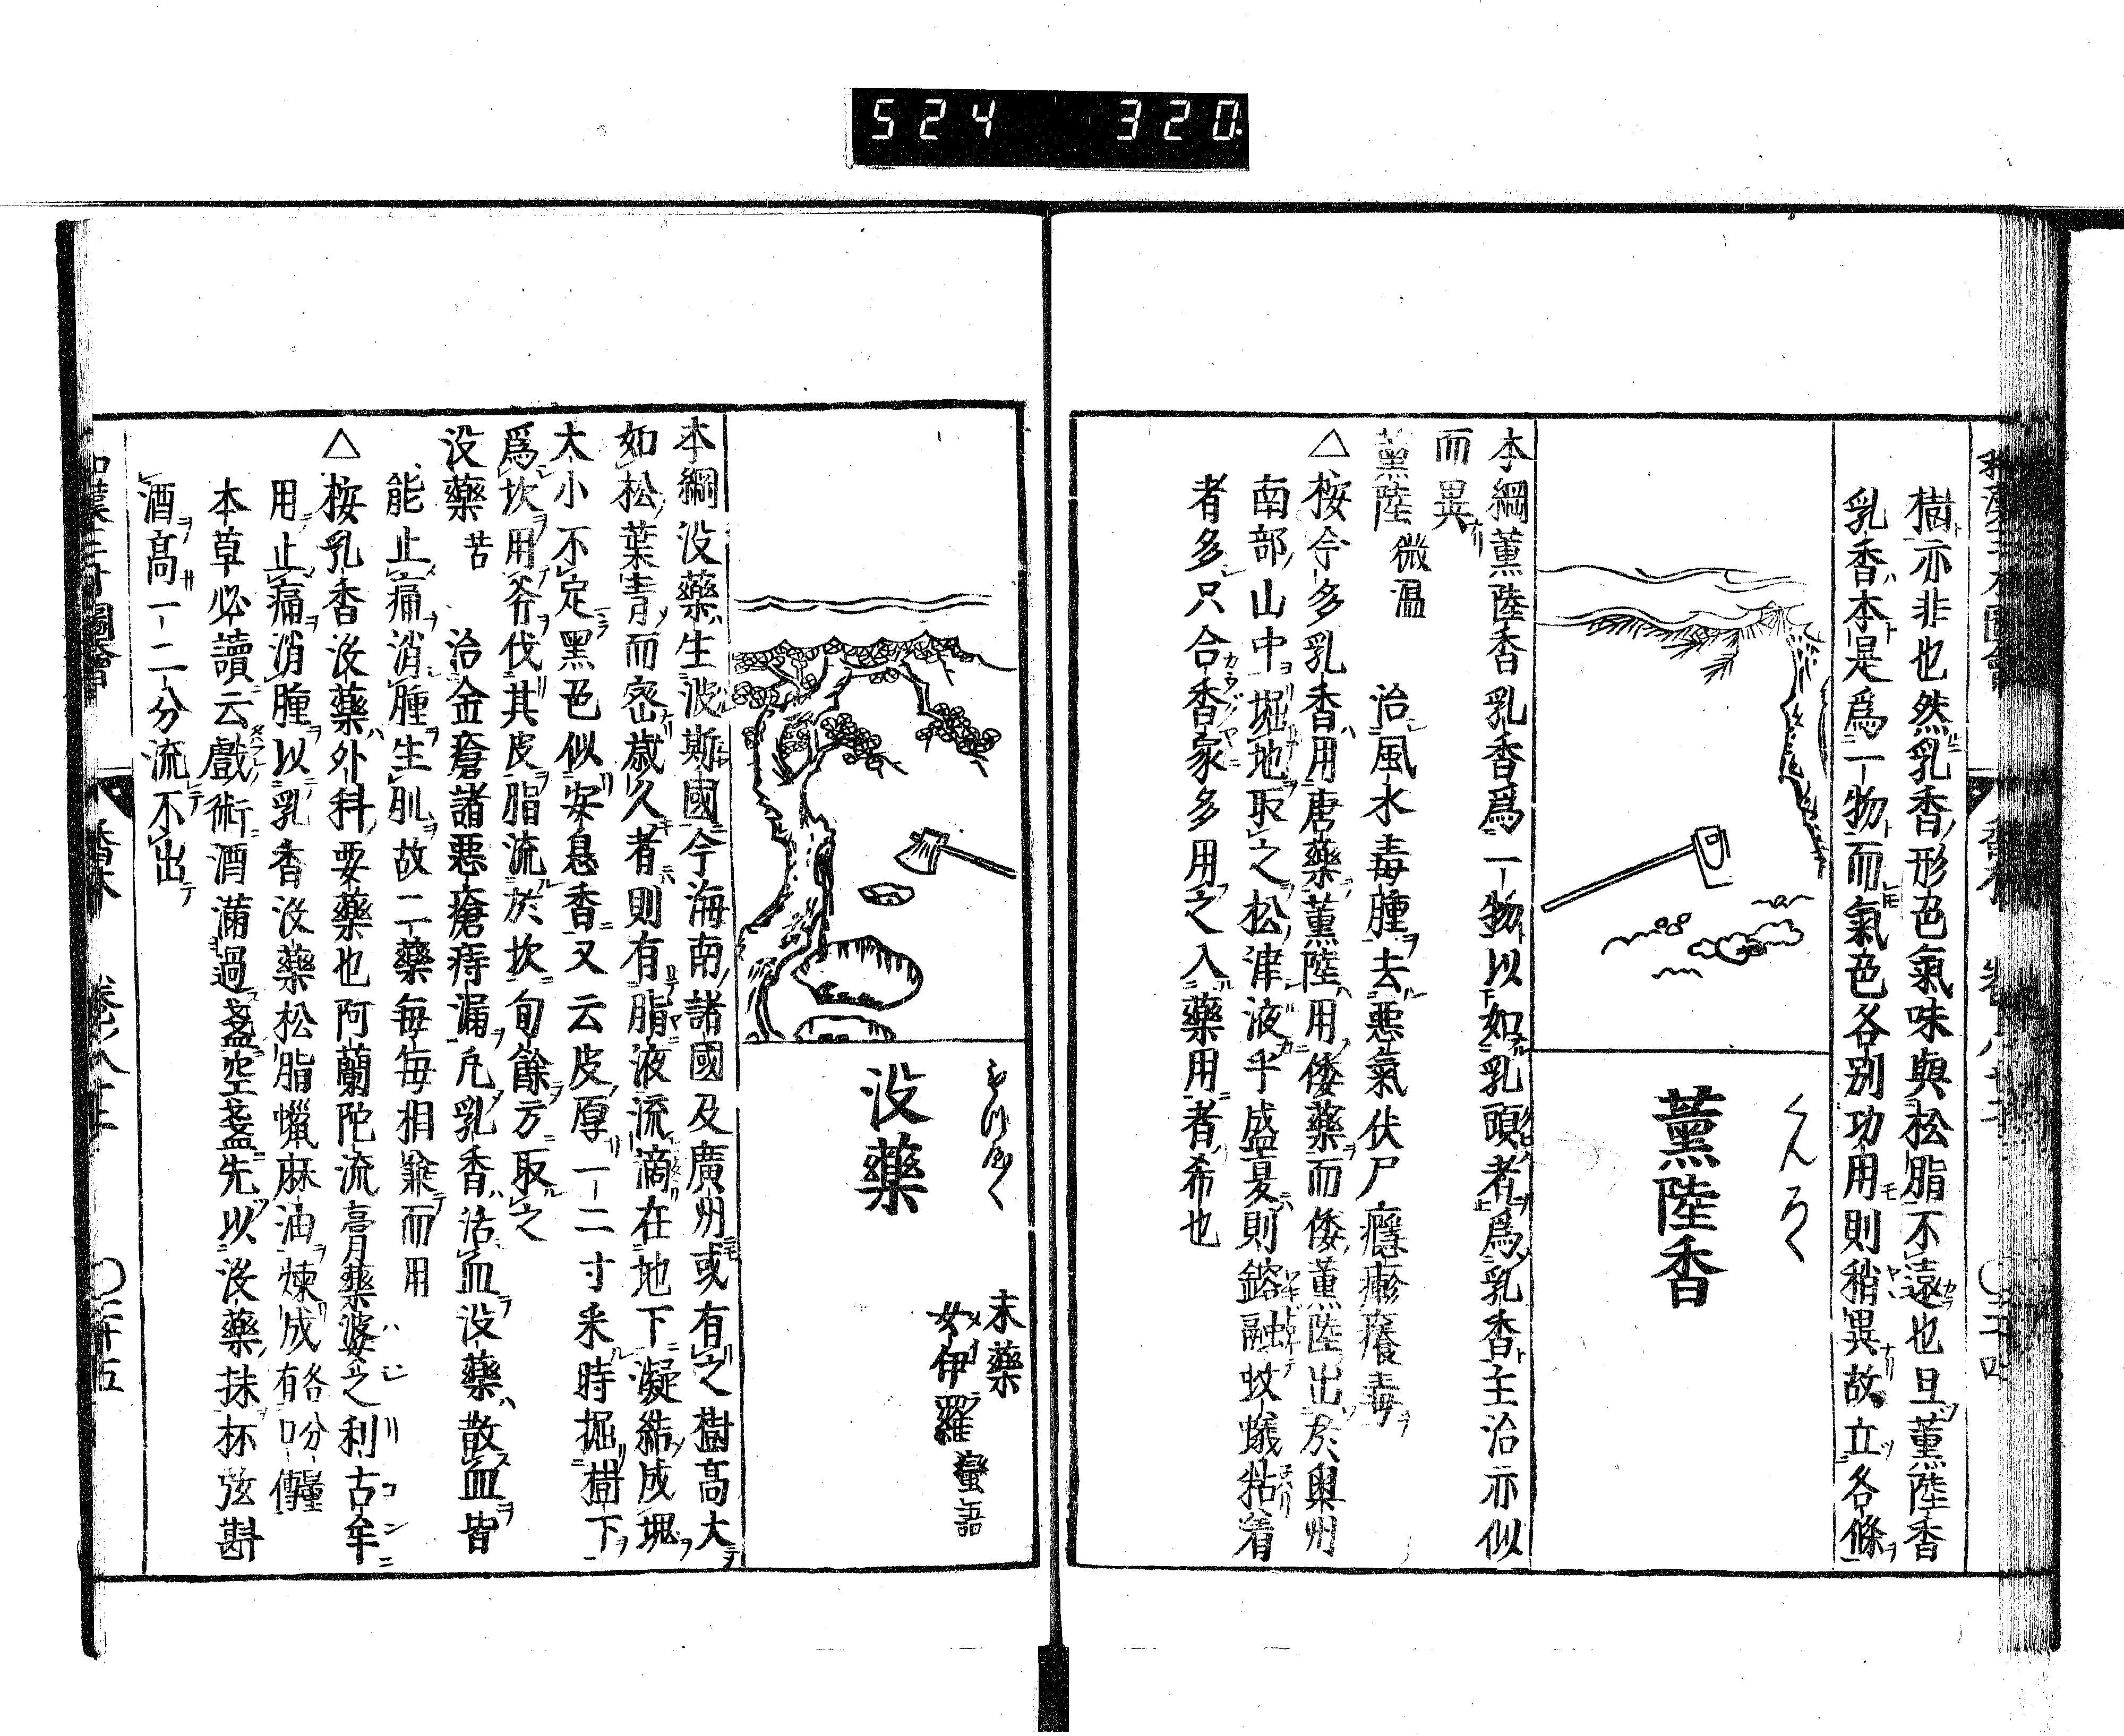 524 320
樹亦非也然乳香形色氣味與松脂不遠也且薫陸香
乳香本是爲一物而氣色各别功用則稍異故立各條
くんろく
薫陸香
本綱薫陸香乳香爲一物以如乳頭者爲乳香主治亦似
而異
薫陸 微温 治風水毒腫去惡氣伏尸癮瘮癢毒
△按今多乳香用唐藥薫陸用倭藥而倭薫陸出於奥州
南部山中堀地取之松津液乎盛夏則鎔融蚊蟻粘着
者多只合香家多用之入藥用者希也
もつやく
没藥
末藥
女伊羅 蠻語
本綱没藥生波斯國今海南諸國及廣州或有之樹高大
如松葉青而宻歳久者則有脂液流滴在地下凝結成塊
大小不定黑色似安息香又云皮厚一二寸采時掘樹下
爲坎用斧伐其皮脂流於坎旬餘方取之
没藥 苦 治金瘡諸惡瘡痔漏凡乳香活血没藥散血皆
能止痛消腫生肌故二藥毎毎相兼而用
△按乳香没藥外科要藥也阿蘭陀流膏藥婆之利古牟
用止痛消腫以乳香没藥松脂蠟麻油煉成 有各分量 口傳
本草必讀云戲術酒滿過盞空盞先以没藥抹杯弦斟
酒高一二分流不出